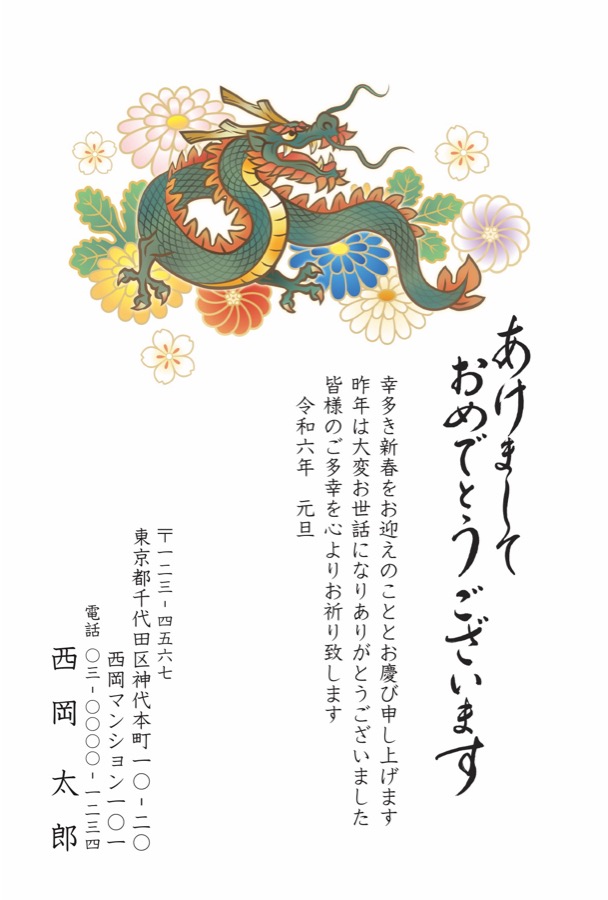 あけまして
おめでとうございます
幸多き新春をお迎えのこととお慶び申し上げます
昨年は大変お世話になりありがとうございました
皆様のご多幸を心よりお祈り致します
令和六年　元旦
〒一二三-四五六七
東京都千代田区神代本町一〇-二〇
西岡マンション一〇一
電話　〇三-〇〇〇〇-一二三四
西岡太郎